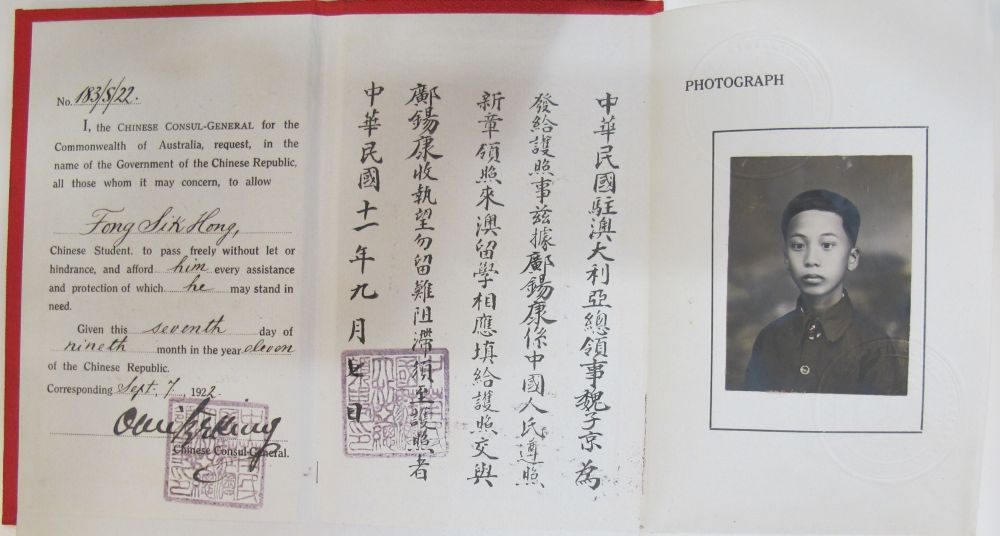 No. 183/S/22.
I, the CHINESE CONSUL-GENERAL for the
Commonwealth of Australia, request, in the
name of the Government of the Chinese Republic,
all those whom it may concern, to allow
Fong Sik Hong,
Chinese Student. to pass freely without let or
hindrance, and afford him every assistance
and protection of which he may stand in
need.
Given this seventh day of
nineth month in the year eleven
of the Chinese Republic.
Corresponding Sept. 7, 1922.
Chinese Consul-General.
中華民國駐澳大利亞總領事魏子京為
發給護照事茲據鄺錫康係中國人民遵照
新章領照來澳留學相應填給護照交與
鄺錫康收執望勿留難阻滯須至護照者
中華民國十一年九月七日
PHOTOGRAPH